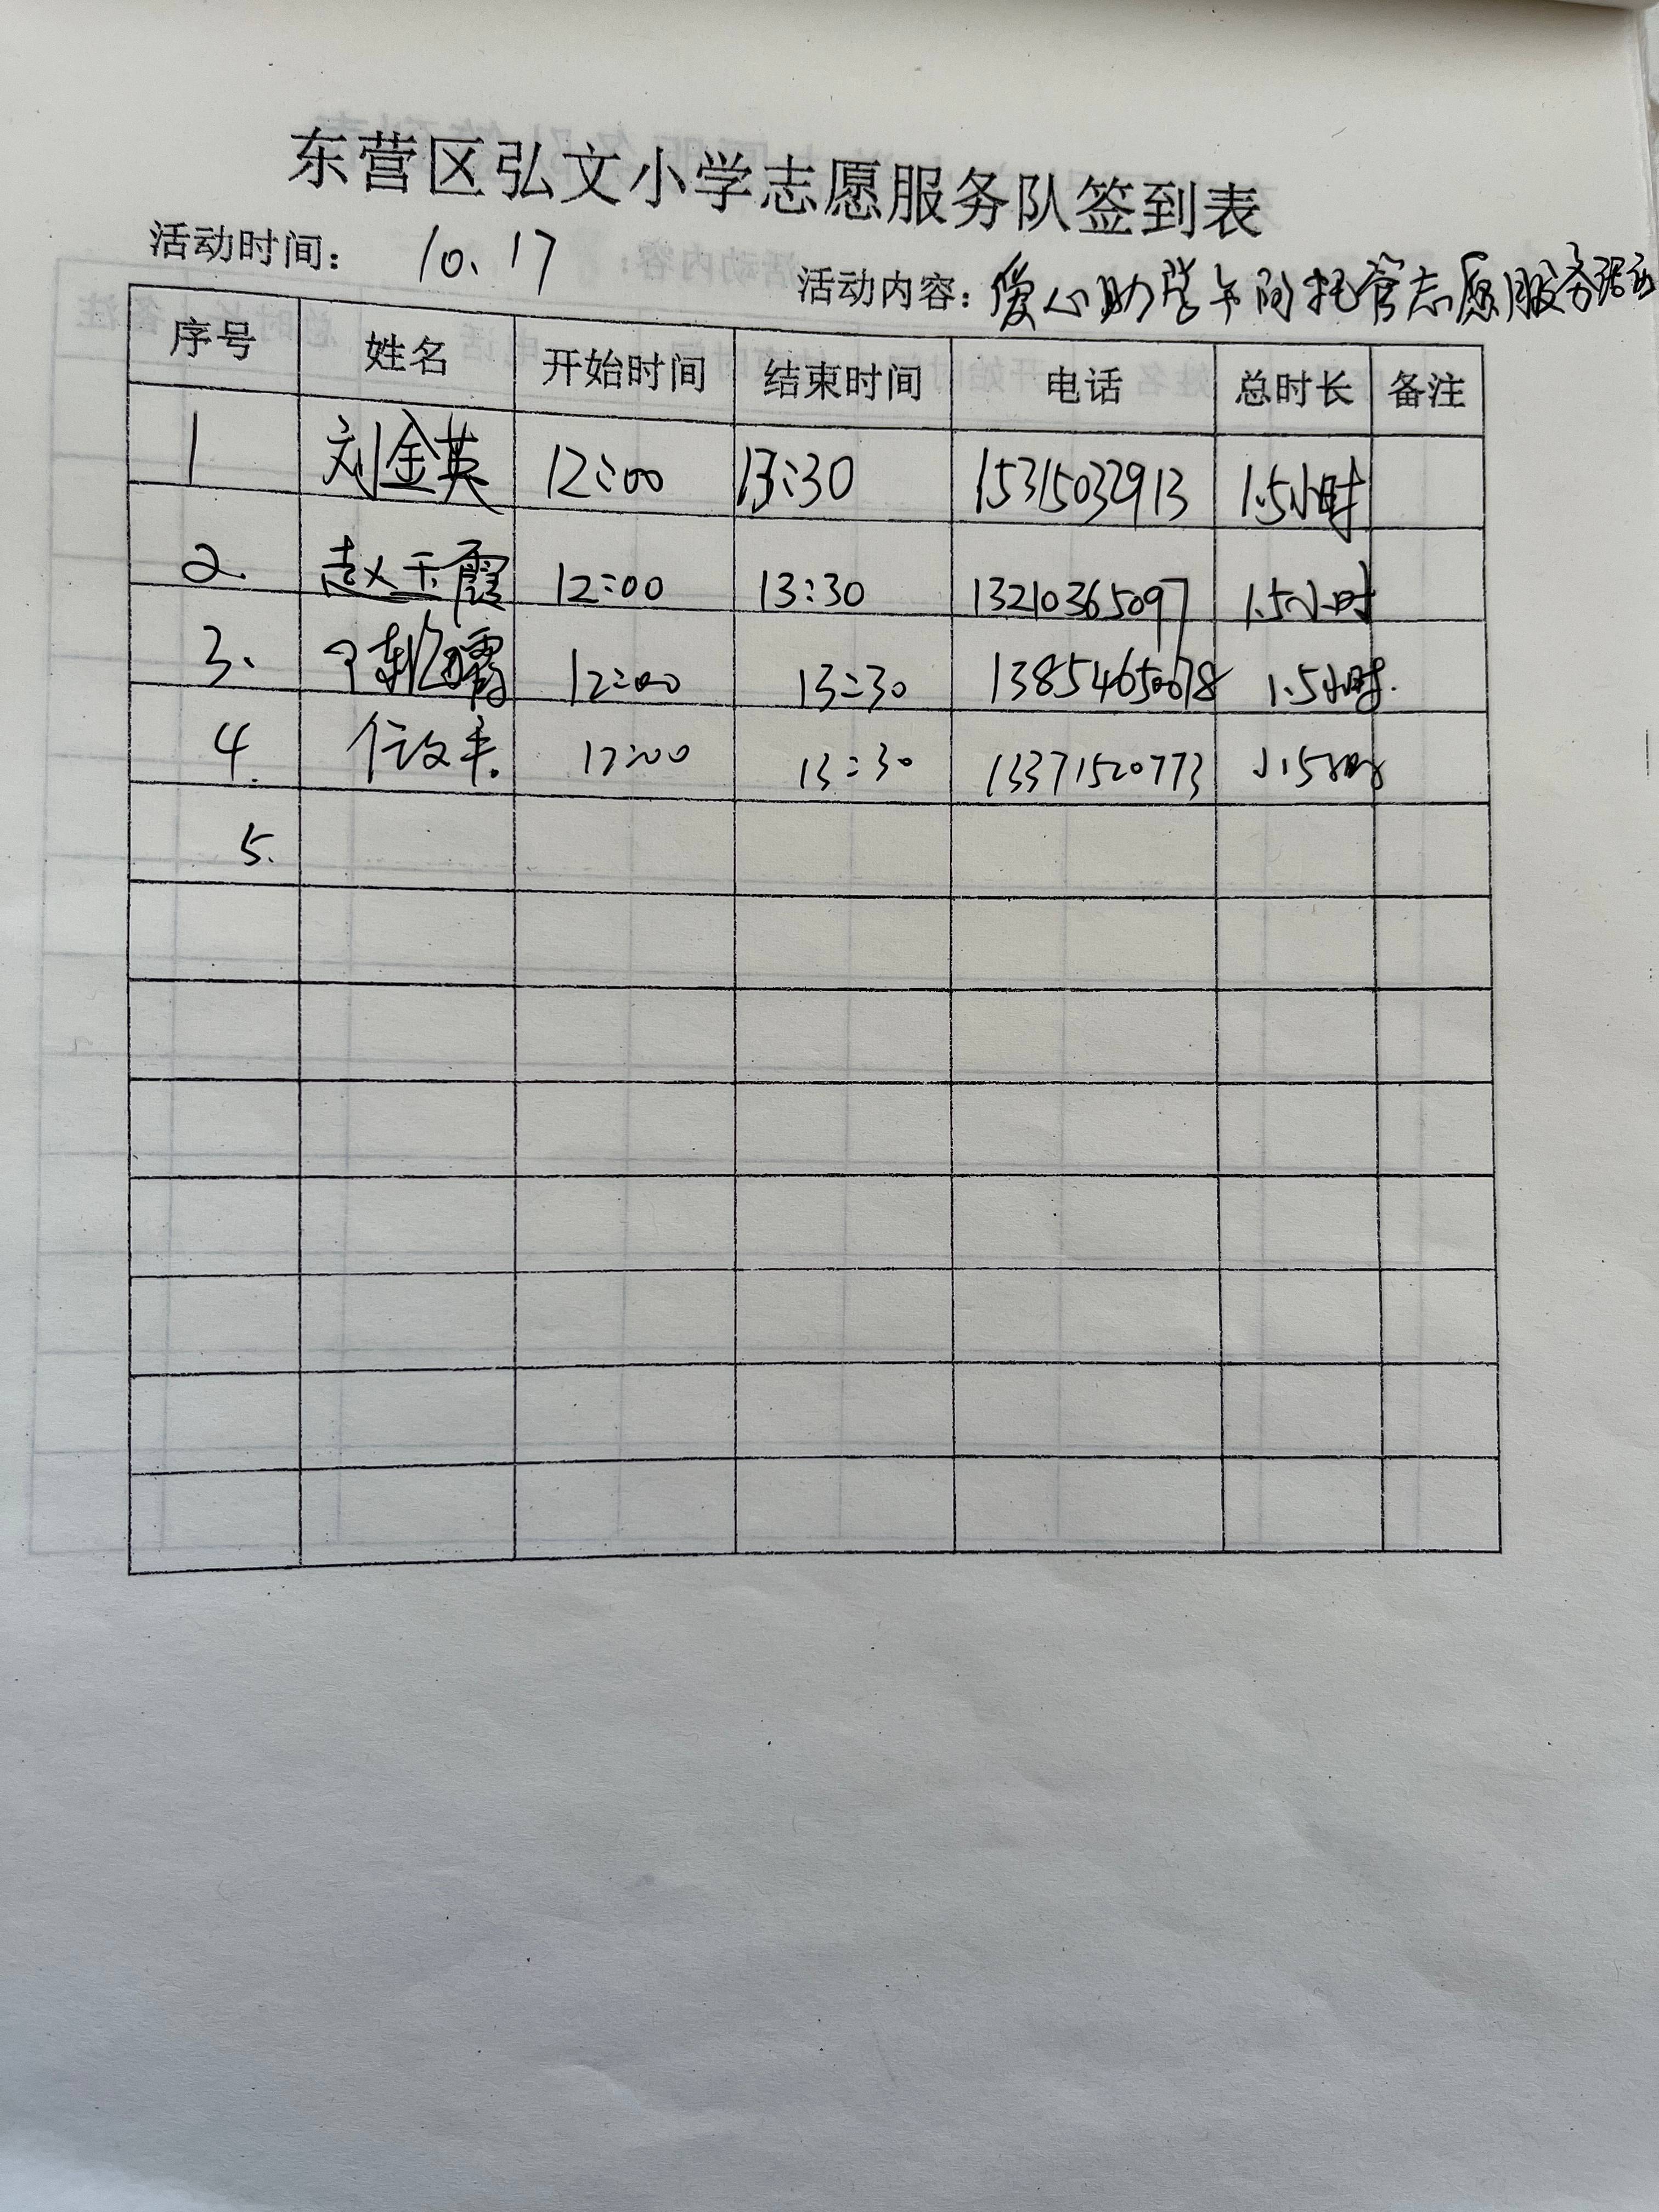 东营区弘文小学志愿服务队签到表
活动时间： 10.17
活动内容：爱心助学午间托管志愿服务活动
序号 姓名 开始时间 结束时间 电话 总时长 备注
1 刘金英 12:00 13:30 15315032913 1.5小时
2. 赵玉霞 12:00 13:30 13210365097 1.5小时
3. 12:00 13:30 13854650678 1.5小时.
4. 12:00 13:30 13371520773 1.5小时
5.